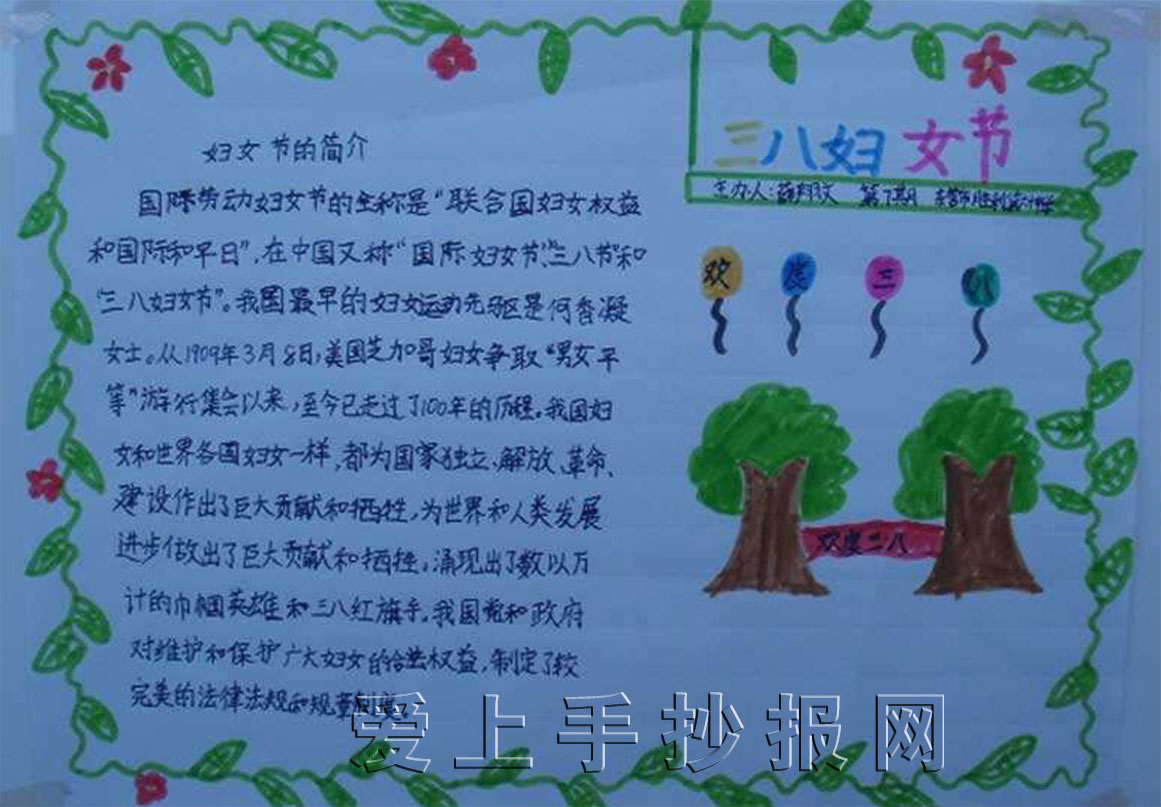 妇女节的简介
国际劳动妇女节的全称是“联合国妇女权益
和国际和平日”,在中国又称“国际妇女节”、“三八节”和
“三八妇女节”。我国最早的妇女运动先驱是何香凝
女士。从1909年3月8日,美国芝加哥妇女争取“男女平
等”游行集会以来,至今已走过了100年的历程。我国妇
女和世界各国妇女一样,都为国家独立、解放、革命、
建设作出了巨大贡献和牺牲,为世界和人类发展
进步做出了巨大贡献和牺牲,涌现出了数以万
计的巾帼英雄和三八红旗手。我国党和政府
对维护和保护广大妇女的合法权益,制定了较
完美的法律法规和规章制度。
三八妇女节
主办人: 第7期
欢度三八
欢度三八
爱上手抄报网